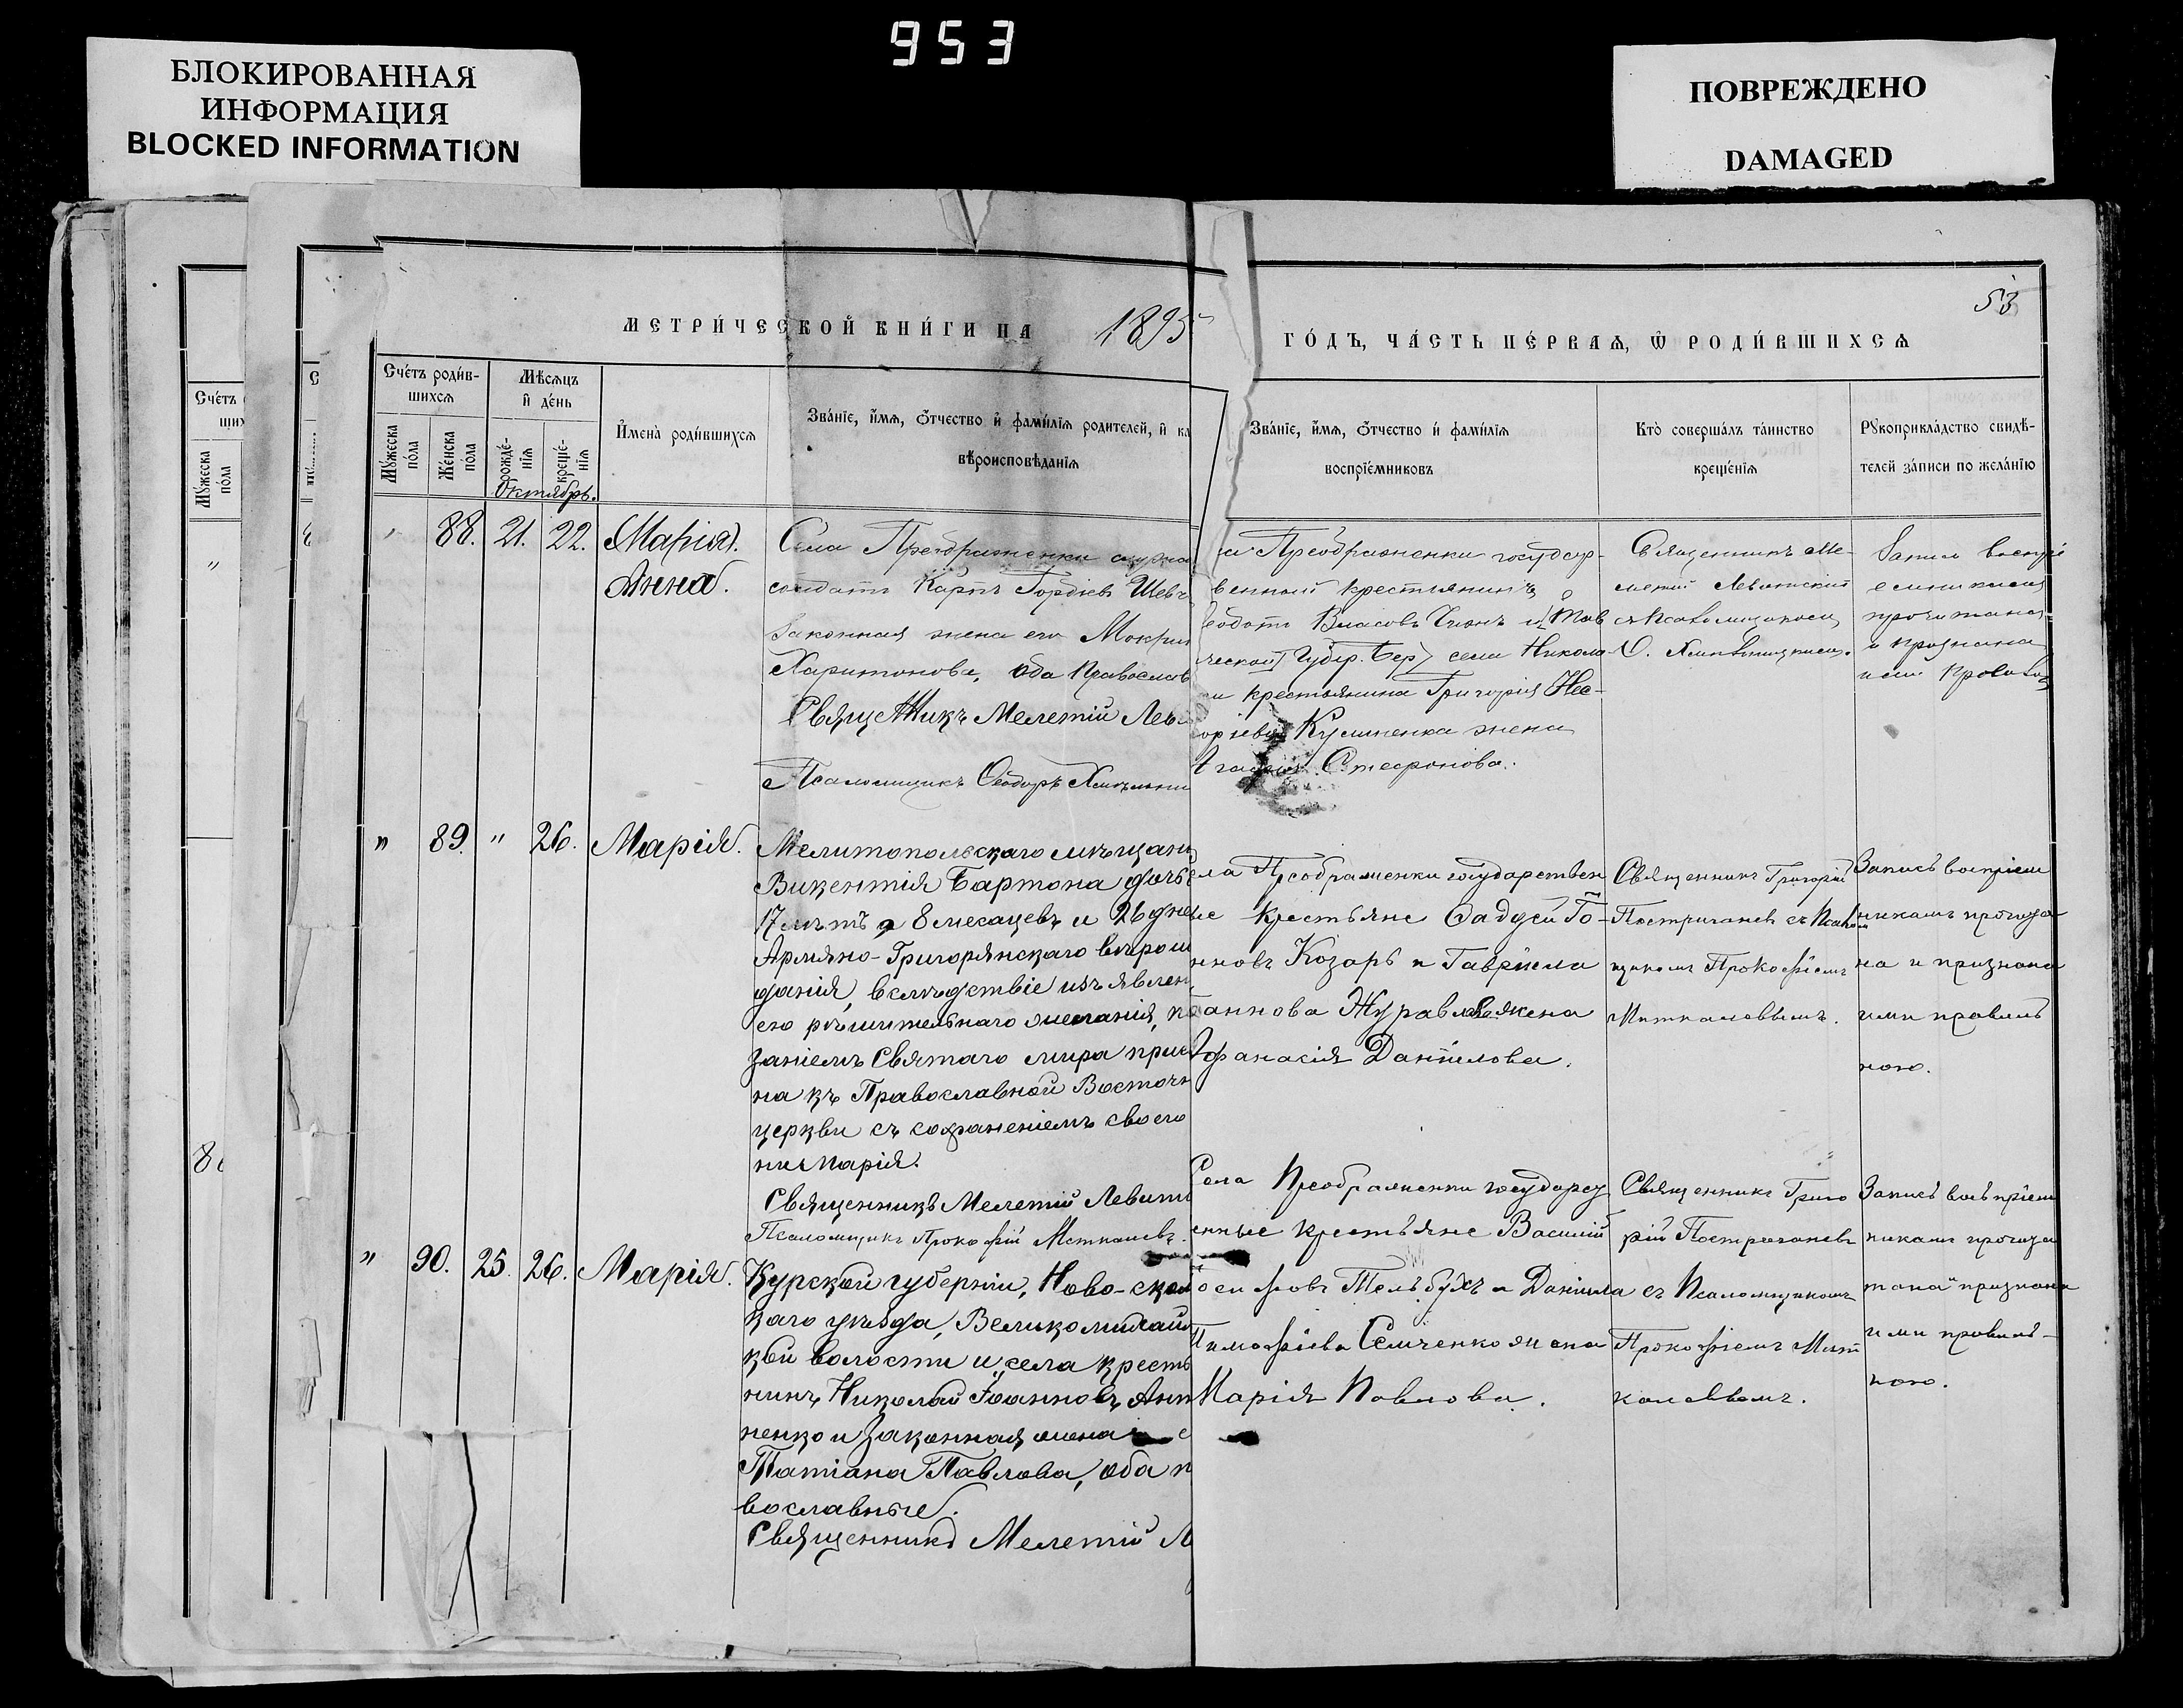 953
БЛОКИРОВАННАЯ
ИНФОРМАЦИЯ
BLOCKED INFORMATION
ПОВРЕЖДЕНО
DAMAGED
53
МЕТРИ́ЧЕСКОЙ КНИ́ГИ НА 1895
ГО́ДЪ, ЧА́СТЬ ПЕ́РВАѦ, Ѡ҆ РОДИ́ВШИХСѦ
Сче́тъ роди́в-
шихсѧ
Мꙋ́жеска
по́ла
Же́нска
по́ла
Мѣ́сѧцъ
и҆ де́нь
рожде́-
нїѧ
креще́-
нїѧ
Октябрь.
И҆мена̀ роди́вшихсѧ
Зва́нїе, и҆́мѧ, ѻ҆́тчество и҆ фами́лїѧ родителей, и҆ ка
вѣроисповѣ́данїѧ
Зва́нїе, и҆́мѧ, ѻ҆́тчество и҆ фами́лїѧ
воспрїе́мниковъ
Кто̀ соверша́лъ та́инство
креще́нїѧ
Рꙋкоприкла́дство свидѣ́-
телей за́писи по жела́нїю
" 88. 21. 22. Марія).
Анна.
Села Преображенки
солдатъ Карпъ Гордіевъ Шевч
Законная жена его Мокрин
Харитонова, оба православ
Священникъ Мелетій Лев
Псаломщикъ Ѳеодоръ
ла Преображенки государ-
венный крестьянинъ
еодотъ Власовъ и Тав
ческой Губер. Бер села Никола
крестьянина Григорія Нес-
Кушненка жена
Стефанова.
Священникъ Ме-
летій Левитскій
съ Псаломщикомъ
Ѳ.
Запись воспріе
емниками
прочитана
и признана
ими
" 89. " 26. Марія.
Мелитопольскаго мѣщани
Викентія Бартона дочь
17 лѣтъ 8 месяцевъ и 26 дне
Армяно-Григорянскаго вѣроис
данія, вслѣдствіе изъявлен
ею рѣшительнаго желанія, п
заніемъ Святаго мира прис
на къ Православной Восточн
церкви съ сохраненіемъ своего
ни Марія.
Священникъ Мелетій Левит
Псаломщикъ Прокофій Меткалевъ.
ела Преображенки государствен
ые крестьяне Фадуей Іо-
нновъ Козарь и Гавріила
оаннова Журавля жена
Афанасія Даніилова.
Священникъ Григорій
Постригачевъ съ Псалом
щикомъ Прокофіемъ
Меткалевымъ.
Запись воспріем
никами прочита
на и признана
ими правиль
ною.
" 90. 25. 26. Марія.
Курской губерніи, Ново-скол
каго уѣзда, Великомихай
кой волости и села кресть
нинъ Николай Іоанновъ Анто
ненко и Законная жена е
Татіана Павлова, оба п
вославные.
Священникъ Мелетій Л
Села Преображенки государст
енные крестьяне Василій
осифовъ Тельбухъ и Даніила
Тимофіева Семченко жена
Марія Павлова.
Священникъ Григо
рій Постригачевъ
съ Псаломщикомъ
Прокофіемъ Мет
калевымъ.
Запись воспріем
никами прочи
тана и признана
ими правиль-
ною.